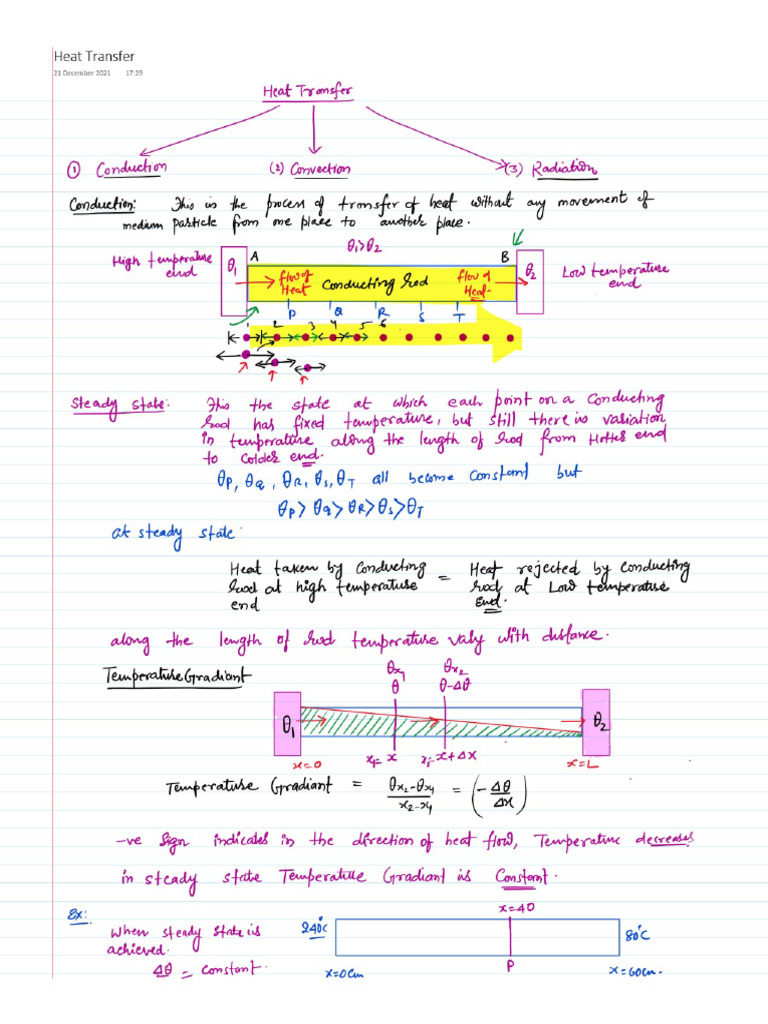 Heat Transfer
21 December 2021 17:29
Heat Transfer
① Conduction (2) Convection (3) Radiation
Conduction: This is the process of transfer of heat without any movement of
medium particle from one place to another place.
θ₁>θ₂
High temperature end θ₁ A B θ₂ Low temperature end
flow of Heat Conducting Rod flow of Heat
P Q R S T
1 2 3 4 5 6
Steady state: This the state at which each point on a conducting
Rod has fixed temperature, but still there is variation
in temperature along the length of Rod from Hotter end
to colder end.
θP, θQ, θR, θS, θT all become constant but
θP > θQ > θR > θS > θT
at steady state:
Heat taken by conducting = Heat rejected by conducting
Rod at high temperature Rod at Low temperature
end end.
along the length of Rod temperature vary with distance.
Temperature Gradiant
θx₁ θx₂
θ θ-Δθ
θ₁ θ₂
x=0 x₁= x x₂= x+Δx x=L
Temperature Gradiant = θx₂-θx₁ / x₂-x₁ = (-Δθ/Δx)
-ve sign indicates in the direction of heat flow, Temperature decreases
in steady state Temperature Gradiant is Constant.
x=40
Ex: When steady state is 240°C 80°C
achieved.
Δθ = constant. x=0cm P x=60cm.